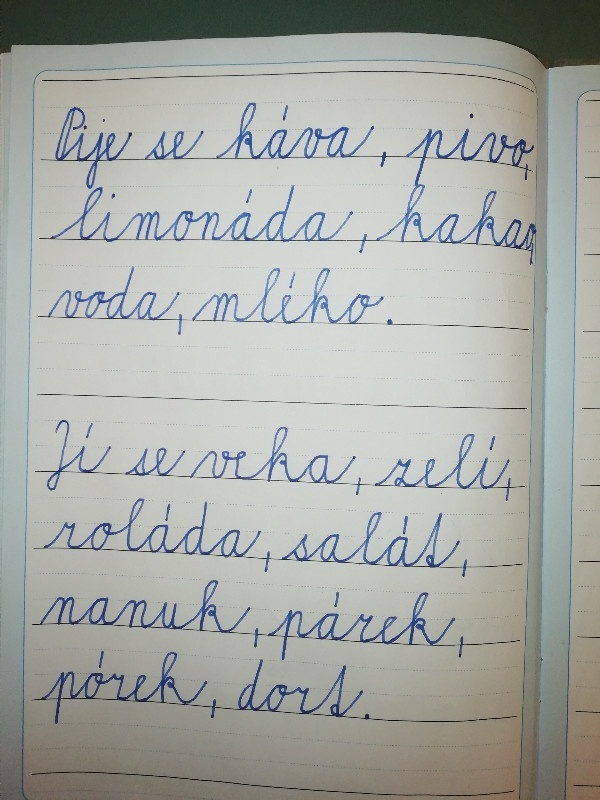 Pije se káva, pivo,
limonáda, kakao,
voda, mléko.
Jí se veka, zelí,
roláda, salát,
nanuk, párek,
pórek, dort.